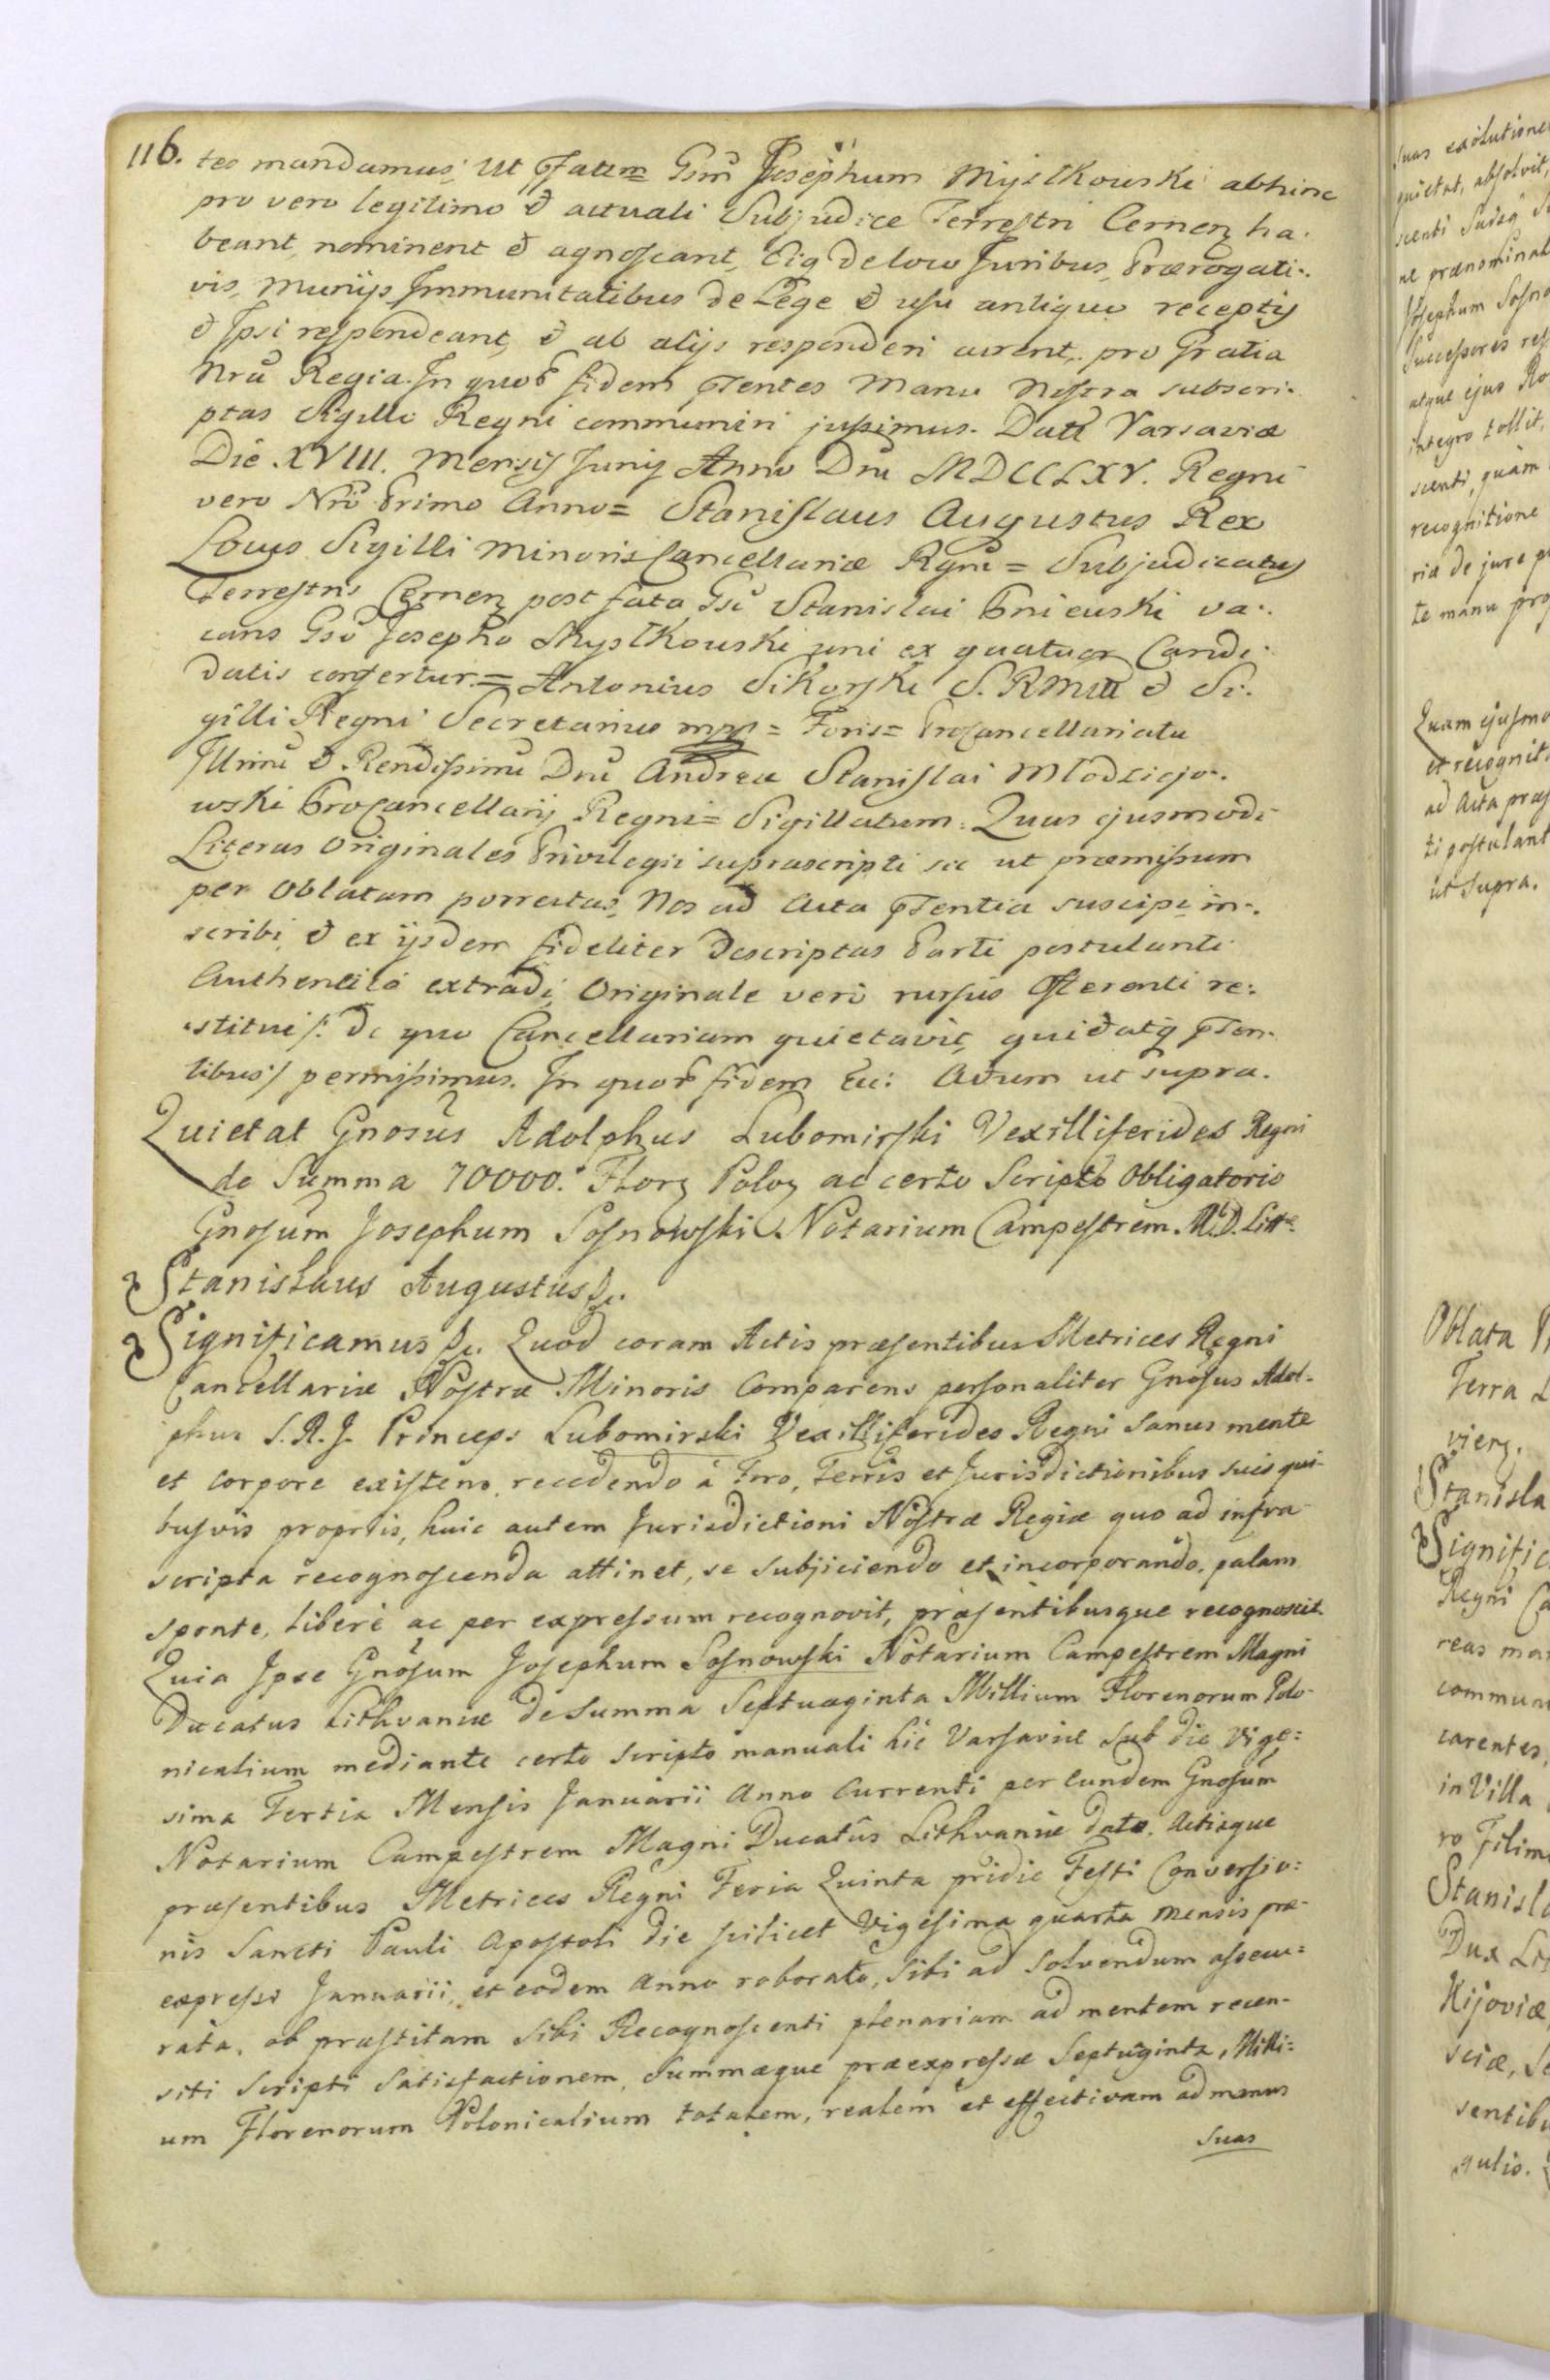 116.
teo mandamus, Ut pfatum Gsm Josephum Myslkowski abhinc
pro vero legitimo & actuali Subjudice Terrestri Cernen ha.
beant, nominent & agnoscant, Eiq de loco Juribus, Prærogati-.
vis, Munijs Immunitatibus de Lege & usu antiquo receptis
& Ipsi respondeant, & ab alijs responderi curent, pro Gratia
Nrã Regia. In quor fidem pntes Manu Nostra subscri-
ptas Sigillo Regni communiri jussimus. Datt Varsaviæ
Die XVIII. Mensis Junij Anno Dni MDCCLXV. Regni
vero Nri Primo Anno = Stanislaus Augustus Rex
Locus Sigilli Minoris Cancellariæ Rgni = Subjudicatus
Terrestris Cernen post fata Gsi Stanislai Gnieuski va-.
cans Gso Josepho Myslkouski uni ex quatuor Candi-
datis confertur. = Antonius Sikorski S. R M & Si.
gilli Regni Secretarius mpp = Foris = Procancellariatu
Illmi & Rendissimi Dni Andreæ Stanislai Mlodziejo-.
wski Procancellarij Regni = Sigillatum. Quas ejusmodi
Literas Originales Privilegii suprascripti sic ut præmissum
per Oblatam porrectas, Nos ad Acta pntia suscipi, in-.
scribi, & ex ijsdem fideliter descriptas Parti postulanti
Authentice extradi, Originale vero rursus Offerenti re:
stitui /: de quo Cancellariam quietavit, quietatq pnn-
tibus :/ permisimus. In quor fidem &c: Actum ut supra.
Quietat Gnosus Adolphus Lubomirski Vexilliferides Regni
de Summa 70000. Flor Polon ac certo Scripto Obligatorio
Gnosum Josephum Sosnowski Notarium Campestrem. M. D. Litt.
Stanislaus Augustus &c.
Significamus &c. Quod coram Actis præsentibus Metrices Regni
Cancellariæ Nostræ Minoris Comparens personaliter Gnosus Adol-
phus S. R. J. Princeps Lubomirski Vexilliferides Regni Sanus mente
et corpore existens, recedendo á Foro, Terris et Jurisdictionibus suis qui-
busvis propriis, huic autem Jurisdictioni Nostræ Regiæ quo ad infra
scripta recognoscenda attinet, se subjiciendo et incorporando, palam
sponte, libere ac per expressum recognovit, præsentibusque recognoscit.
Quia Ipse Gnosum Josephum Sosnowski Notarium Campestrem Magni
Ducatus Lithvaniæ de Summa Septuaginta Millium Florenorum Polo-
nicalium mediante certo Scripto manuali hic Varsaviæ Sub die Vige=
sima Tertia Mensis Januarii Anno Currenti per Eundem Gnosum
Notarium Campestrem Magni Ducatûs Lithvaniæ dato, Actisque
præsentibus Metrices Regni Feria Quinta pridie Festi Conversio=
nis Sancti Pauli Apostoli die scilicet Vigesima quarta Mensis præ-
expressi Januarii, et eodem Anno roborato, Sibi ad Solvendum assecu=
rata, ob præstitam Sibi Recognoscenti plenariam ad mentem recen-
siti Scripti Satisfactionem, Summæque præexpressæ Septuaginta, Milli=
um Florenorum Polonicalium totalem, realem et effectivam ad manus
Suas
suas exolutione
quietat, absolvit,
scenti Suisq
prænominat
Josephum Sosno
Successores
atque ejus
integro tollit,
scenti, quàm
recognitione
ria de jure
te manu
Quam ejusmo
et recognit
ad Acta præs
ti postulant
ut supra.
Oblata
Terra
Stanisla
Signific
Regni Ca
reas
commun
carentes,
in Villa
ro Filim
Stanisla
Dux
Kijoviæ,
sciæ,
sentibu
gulis.